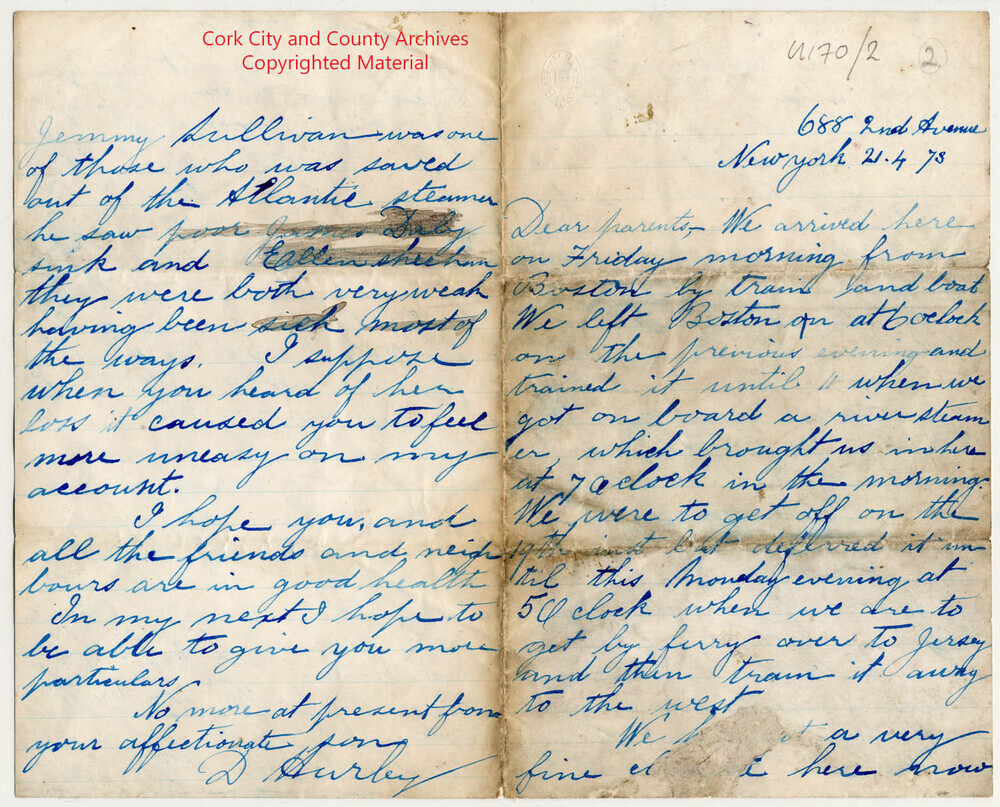 Cork City and County Archives
Copyrighted Material
Jemmy Sullivan was one
of those who was saved
out of the Atlantic steamer
he saw poor James Daly
sink and Ellen Sheehan
they were both very weak
having been sick most of
the ways. I suppose
when you heard of her
loss it caused you to feel
more uneasy on my
account.
I hope you, and
all the friends and neigh
bours are in good health
In my next I hope to
be able to give you more
particulars
No more at present from
your affectionate son
D Hurley
U170/2 2
688 2nd Avenue
New york 21.4 73
Dear parents,- We arrived here
on Friday morning from
Boston by train and boat
We left Boston on at 6 oclock
on the previous evening and
trained it until 11 when we
got on board a river steam
er, which brought us in here
at 7 Oclock in the morning.
We were to get off on the
19th inst but deferred it un
til this Monday evening at
5 Oclock when we are to
get by ferry over to Jersey
and then train it away
to the west
We a very
fine here now